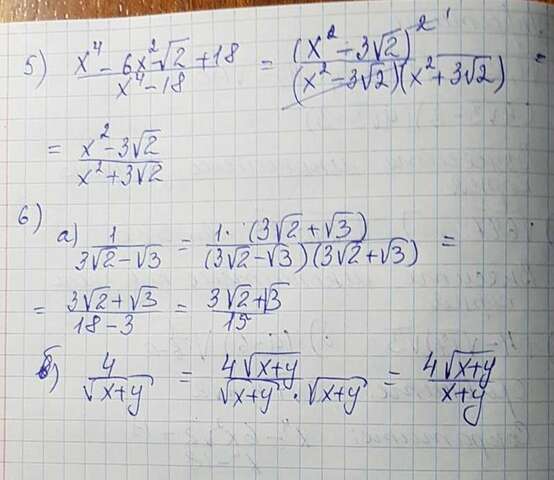 5) (x⁴ - 6x²√2 + 18)/(x⁴ - 18) = (x² - 3√2)²/((x² - 3√2)(x² + 3√2)) =
= (x² - 3√2)/(x² + 3√2)
6)
а) 1/(3√2 - √3) = 1·(3√2 + √3)/((3√2 - √3)(3√2 + √3)) =
= (3√2 + √3)/(18 - 3) = (3√2 + √3)/15
б) 4/√(x+y) = 4√(x+y)/(√(x+y) · √(x+y)) = 4√(x+y)/(x+y)